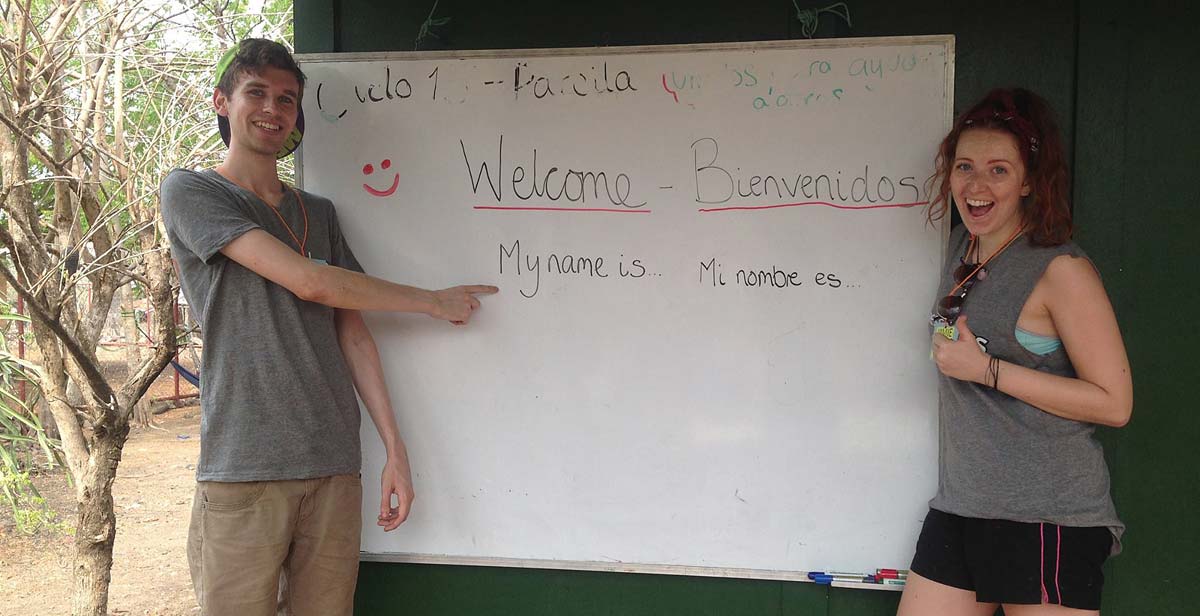 Ciclo 1 - Parcila
Welcome - Bienvenidos
My name is... Mi nombre es...